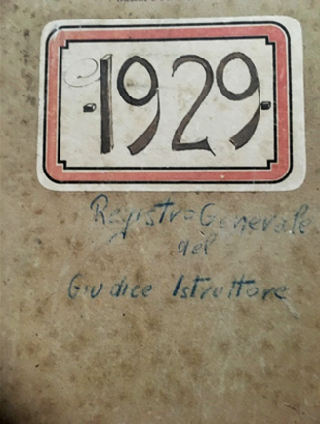 ·1929·
Registro Generale
del
Giudice Istruttore